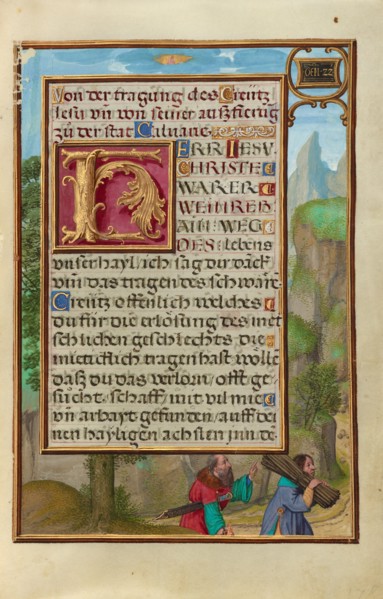 Von der tragung des Creütz
Jesu vn̄ von seiner auszfierūg
zů der stat Caluarie
HERR IESV
CHRISTE
WARER
WEINREB
AIN WEG
DES lebens
vnser hayl, ich sag dir dāck
vm̄ das tragen des schwārē
Creütz offenlich welches
du für die erlösung des mēt
schlichen geschlechts die
mietiklich tragen hast wöllē
dasz du das verlorn, offt ge/
sůcht, schaff mit vil mie
vn̄ arbayt gefunden, auff dei
nen hayligen achslen jnn de